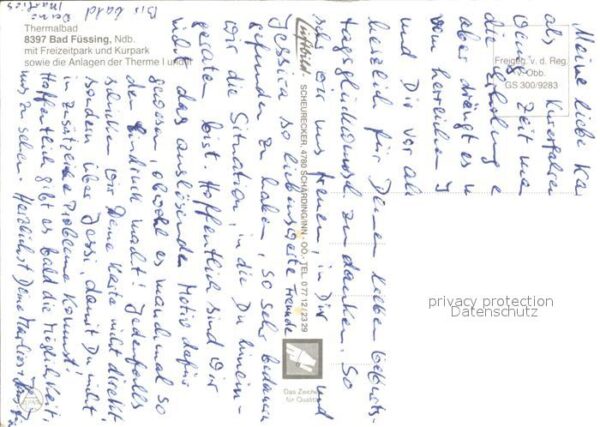 Thermalbad
8397 Bad Füssing, Ndb.
mit Freizeitpark und Kurpark
sowie die Anlagen der Therme I und
Freigeg. v. d. Reg.
v. Obb.
GS 300/9283
Luftbild
SCHEURECKER, 4780 SCHÄRDING/INN - OÖ. - TEL. 0 77 12 / 23 29
Das Zeichen
für Qualität
privacy protection
Datenschutz
Meine liebe
als Kurerfahrene
Zeit
die Erholung
aber drängt es
vom herrlichen
und Dir vor
herzlich für Deinen lieben Geburts-
tagsglückwunsch zu danken. So
sehr wir uns freuen, in Dir und
Jessica so liebenswerte Freunde
gefunden zu haben, so sehr bedauern
wir die Situation, in die Du hinein-
geraten bist. Hoffentlich sind wir
nicht das auslösende Motiv dafür
gewesen, obwohl es manchmal so
den Eindruck macht! Jedenfalls
schicken wir Deine Karte nicht direkt,
sondern über Jessi, damit Du nicht
in zusätzliche Probleme kommst!
Hoffentlich gibt es bald die Möglichkeit,
uns zu sehen. Herzlichst Deine
Bis bald
Deine